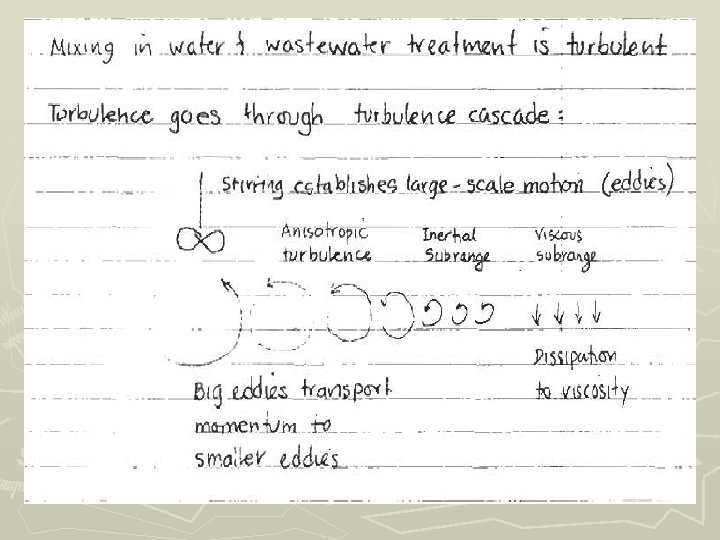 Mixing in water & wastewater treatment is turbulent
Turbulence goes through turbulence cascade:
Stirring establishes large-scale motion (eddies)
Anisotropic
turbulence
Inertial
Subrange
Viscous
subrange
Dissipation
to viscosity
Big eddies transport
momentum to
smaller eddies